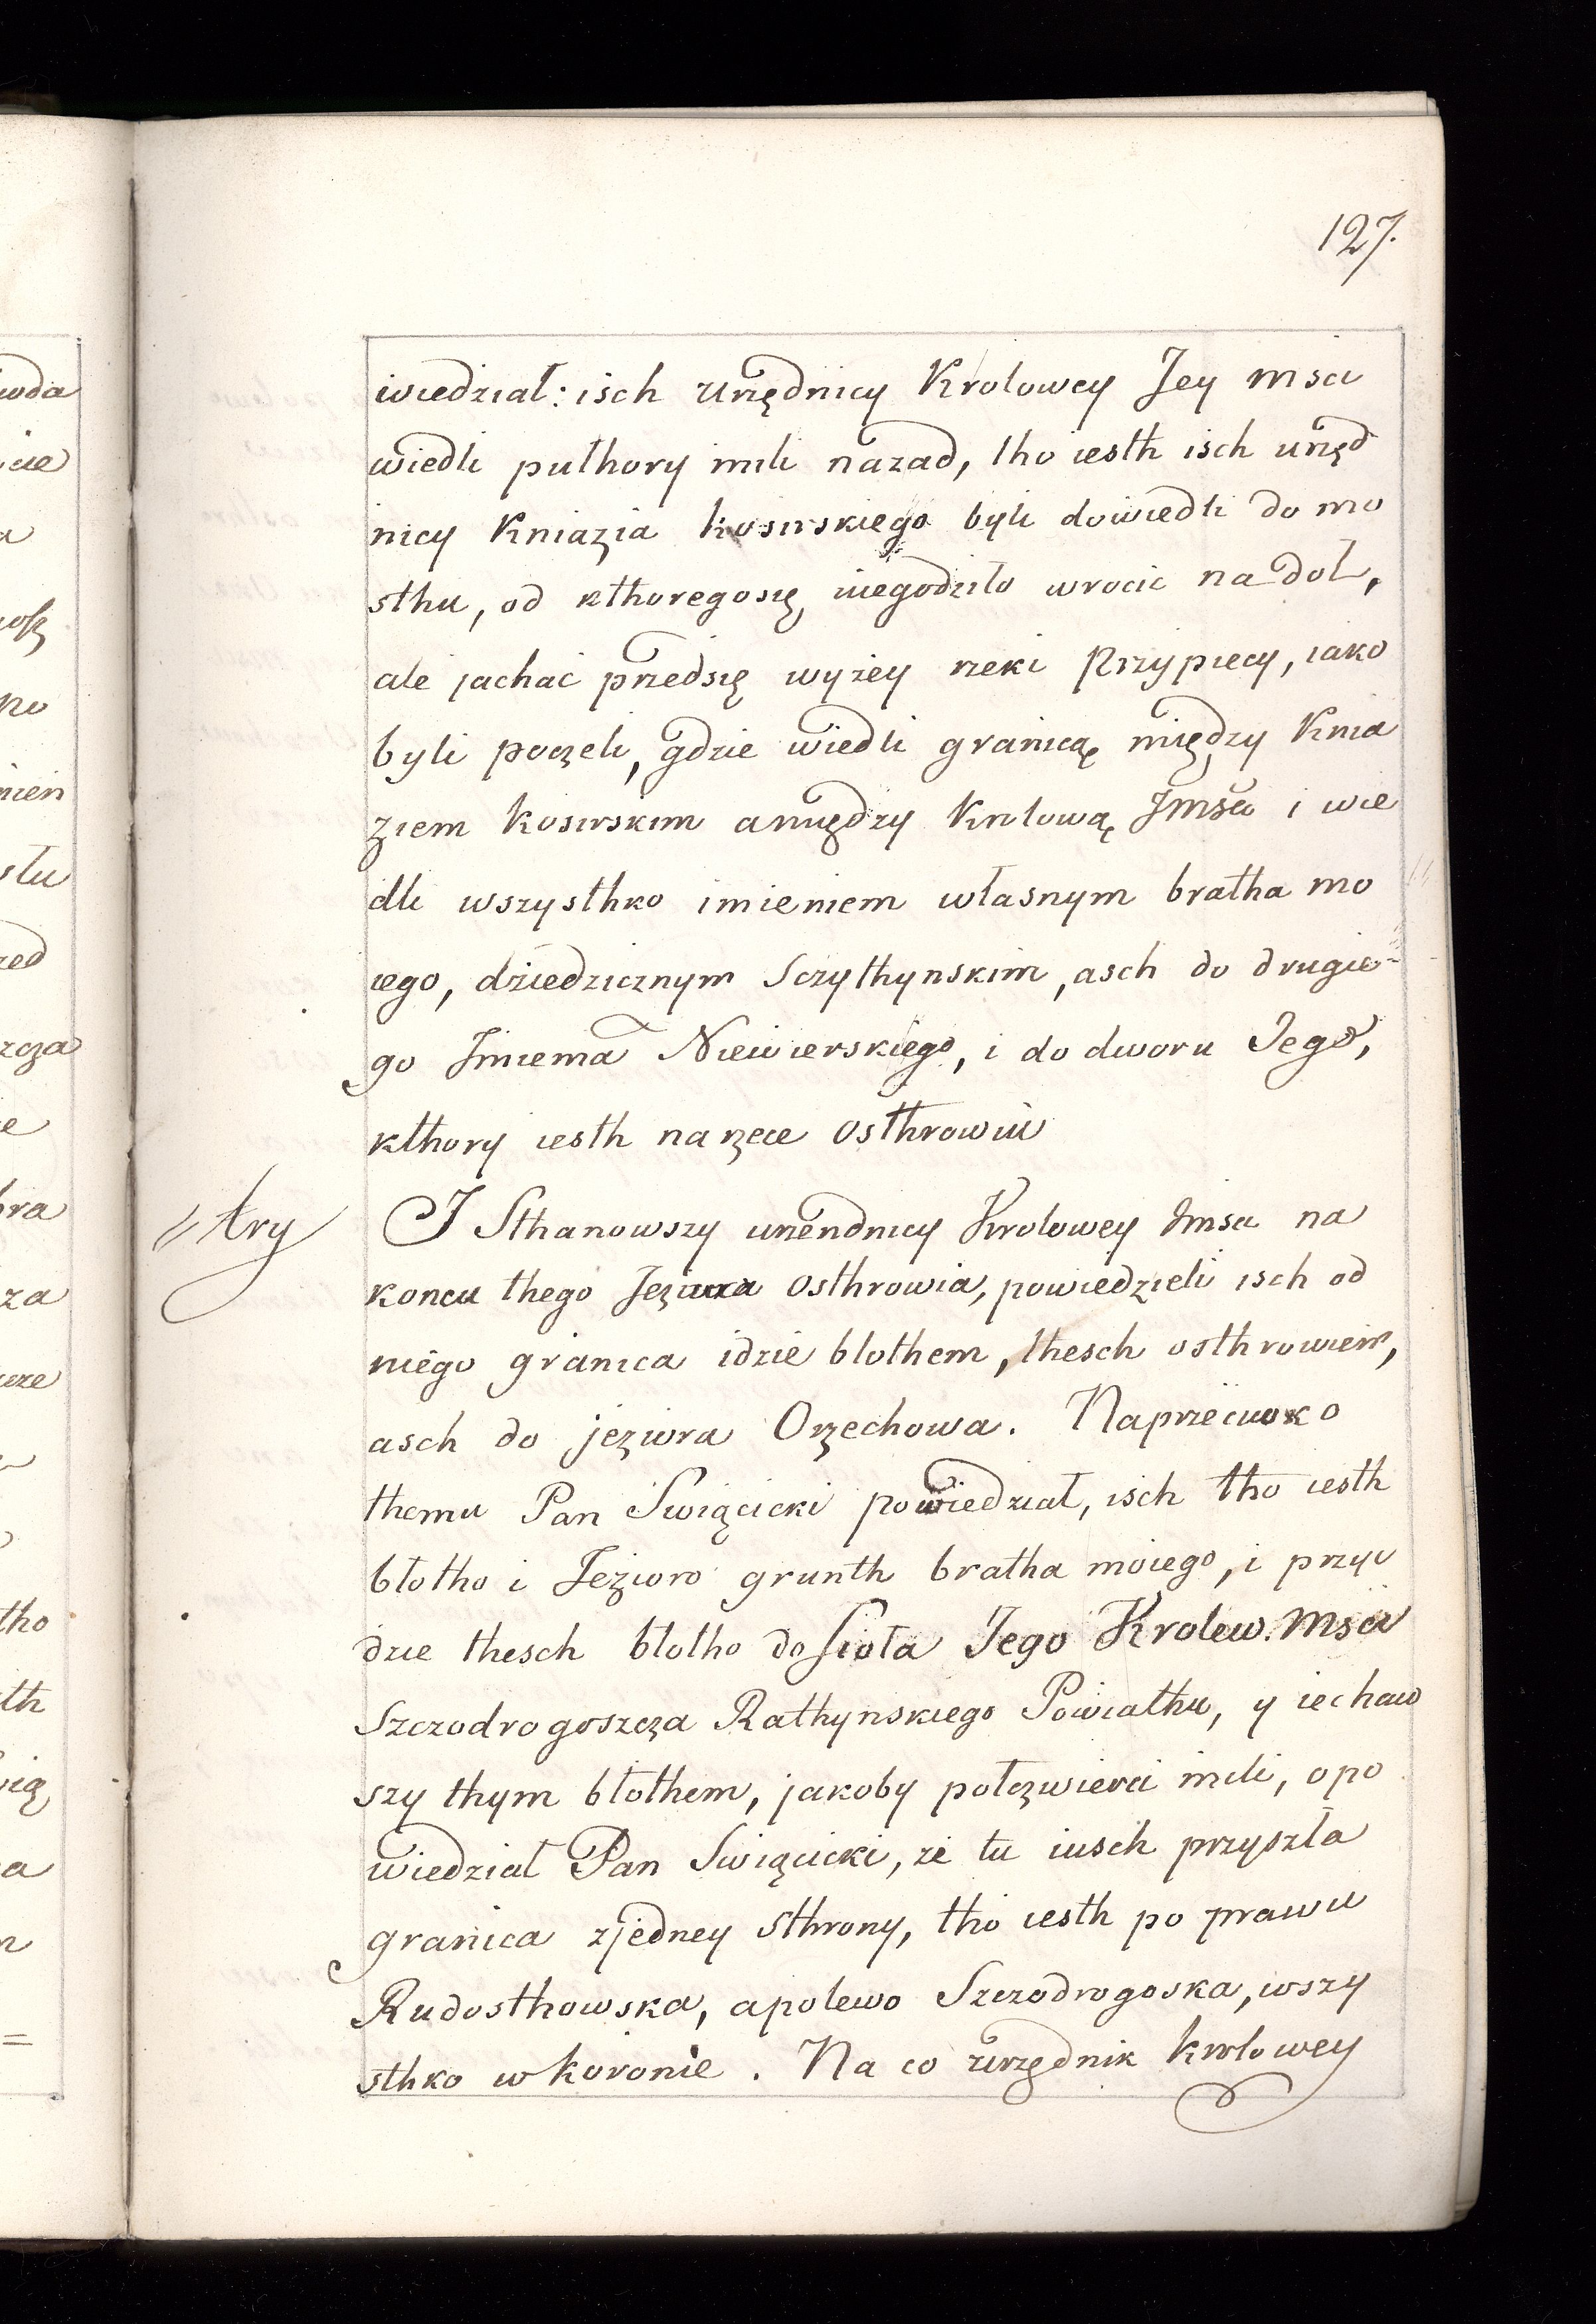 127.
wiedział: isch urzędnicy Krolowey Jey msci
wiedli pułthory mili nazad, tho iesth isch urzęd
nicy Kniazia kosirskiego byli dowiedli do mo
sthu, od kthoregosię niegodziło wrocic na dol,
ale jachać przedsię wyżey rzeki Przypiecy, iako
byli poczeli, gdzie wiedli granicę między Knia
ziem kosirskim amiędzy Krolową Jmścią i wie
dli wszysthko imieniem własnym bratha mo
iego, dziedzicznym Sczythynskim, asch do drugie-
go Jmienia Niewierskiego, i do dworu Jego,
kthory iesth na rzece osthrowiu
try
I Sthanowszy urzendnicy Krolowey Jmsci na
koncu thego Jeziora osthrowia, powiedzieli isch od
niego granica idzie blothem, thesch osthrowiem,
asch do jeziora Orzechowa. Naprzeciwko
themu Pan Swięcicki powiedział, isch tho iesth
błotho i Jezioro grunth bratha moiego, i przyi
dzie thesch błotho do sioła Jego Krolew. Msci
Szczodrogoszcza Rathynskiego Powiathu, y iechaw
szy thym błothem, jakoby połczwierci mili, opo
wiedział Pan Swięcicki, że tu iusch przyszła
granica zjedney sthrony, tho iesth po prawu
Rudosthowska, apolewo Szczodrogoska, wszy
sthko w koronie. Na co urzędnik krolowey